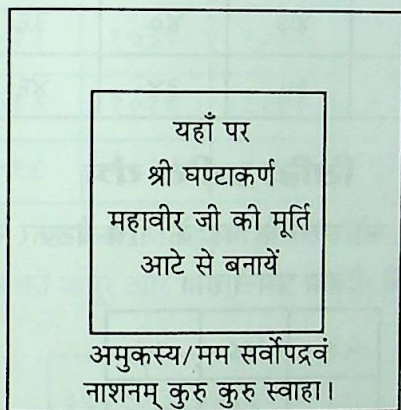 यहाँ पर
श्री घण्टाकर्ण
महावीर जी की मूर्ति
आटे से बनायें
अमुकस्य/मम सर्वोपद्रवं
नाशनम् कुरु कुरु स्वाहा।